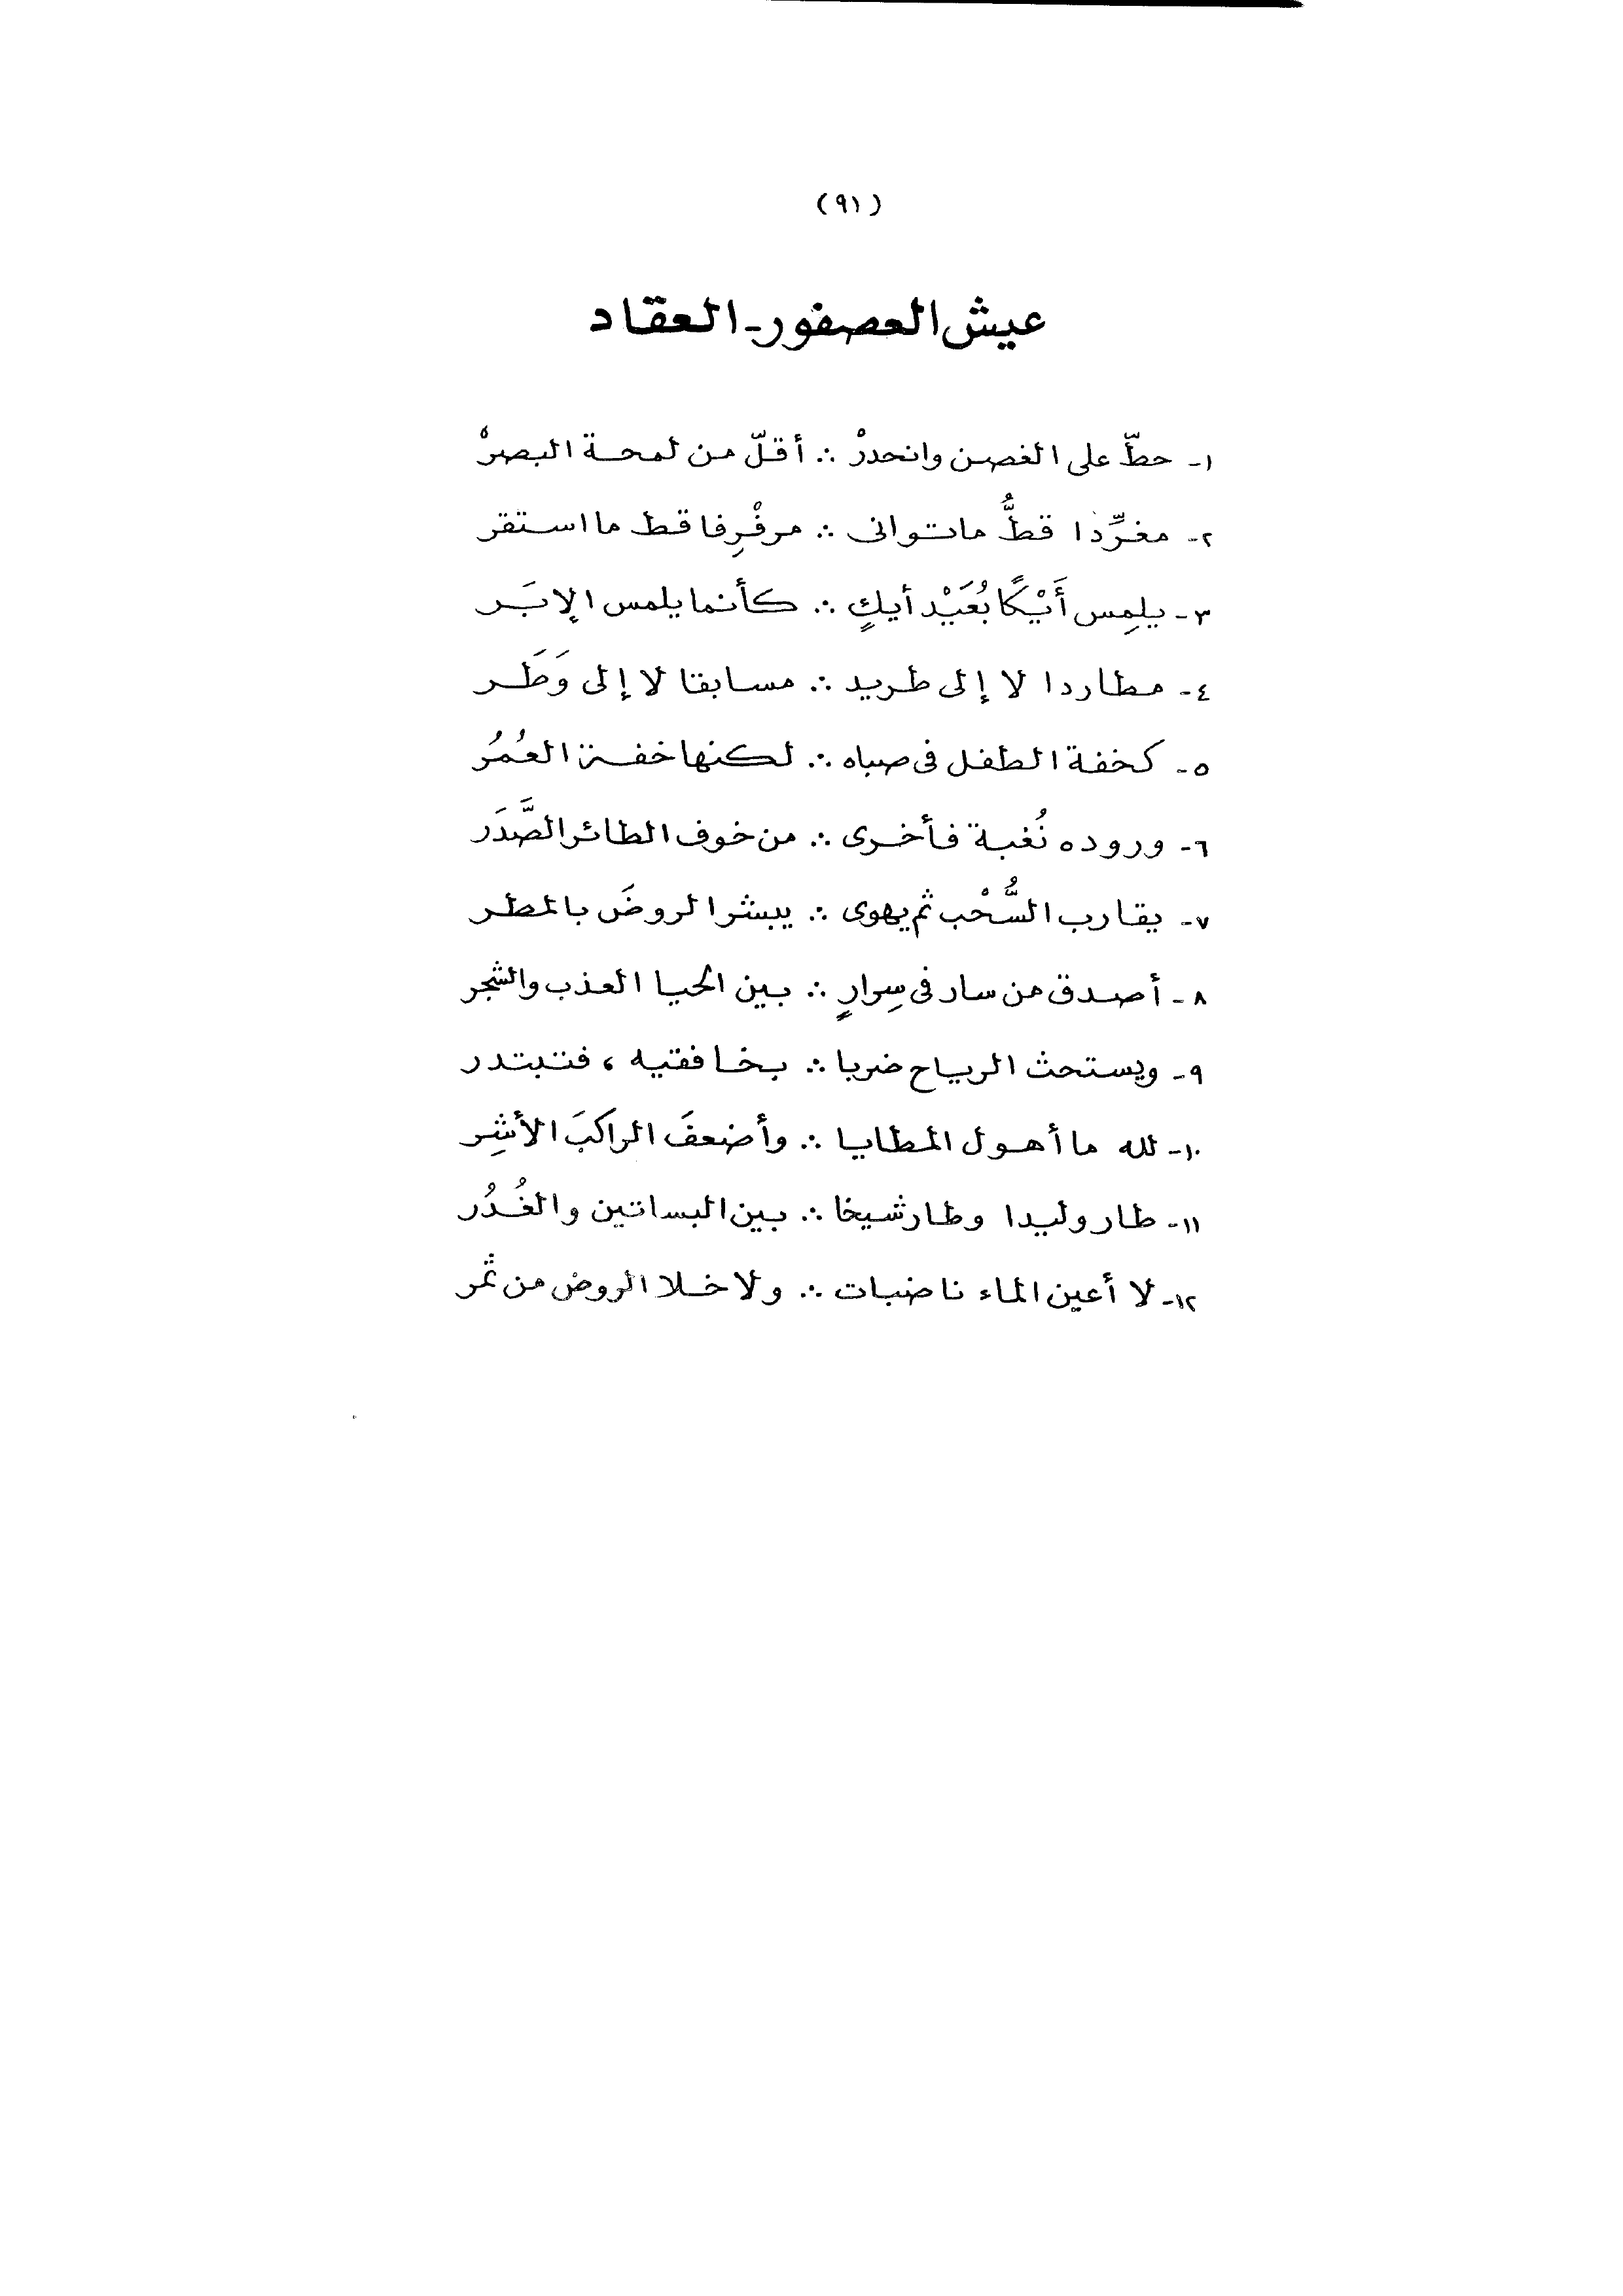 (٩١)
عيش العصفور - العقاد
١- حطّ على الغصن وانحدرْ ∴ أقلّ من لمحة البصرْ
٢- مغرِّدا قطُّ ما توانى ∴ مرفْرِفا قط ما استقر
٣- يلمِس أَيْكًا بُعَيْد أيكٍ ∴ كأنما يلمس الإبَر
٤- مطاردا لا إلى طريد ∴ مسابقا لا إلى وَطَر
٥- كخفة الطفل فى صباه ∴ لكنها خفة العُمُر
٦- وروده نُغبة فأخرى ∴ من خوف الطائر الصَّدَر
٧- يقارب السُّحْب ثم يهوى ∴ يبشر الروضَ بالمطر
٨- أصدق من سار فى سِرارٍ ∴ بين الحيا العذب والشجر
٩- ويستحث الرياح ضربا ∴ بخافقتيه ، فتبتدر
١٠- لله ما أهول المطايا ∴ وأضعفَ الراكبَ الأشِر
١١- طار وليدا وطار شيخا ∴ بين البساتين والغُدُر
١٢- لا أعين الماء ناضبات ∴ ولا خلا الروض من ثمر